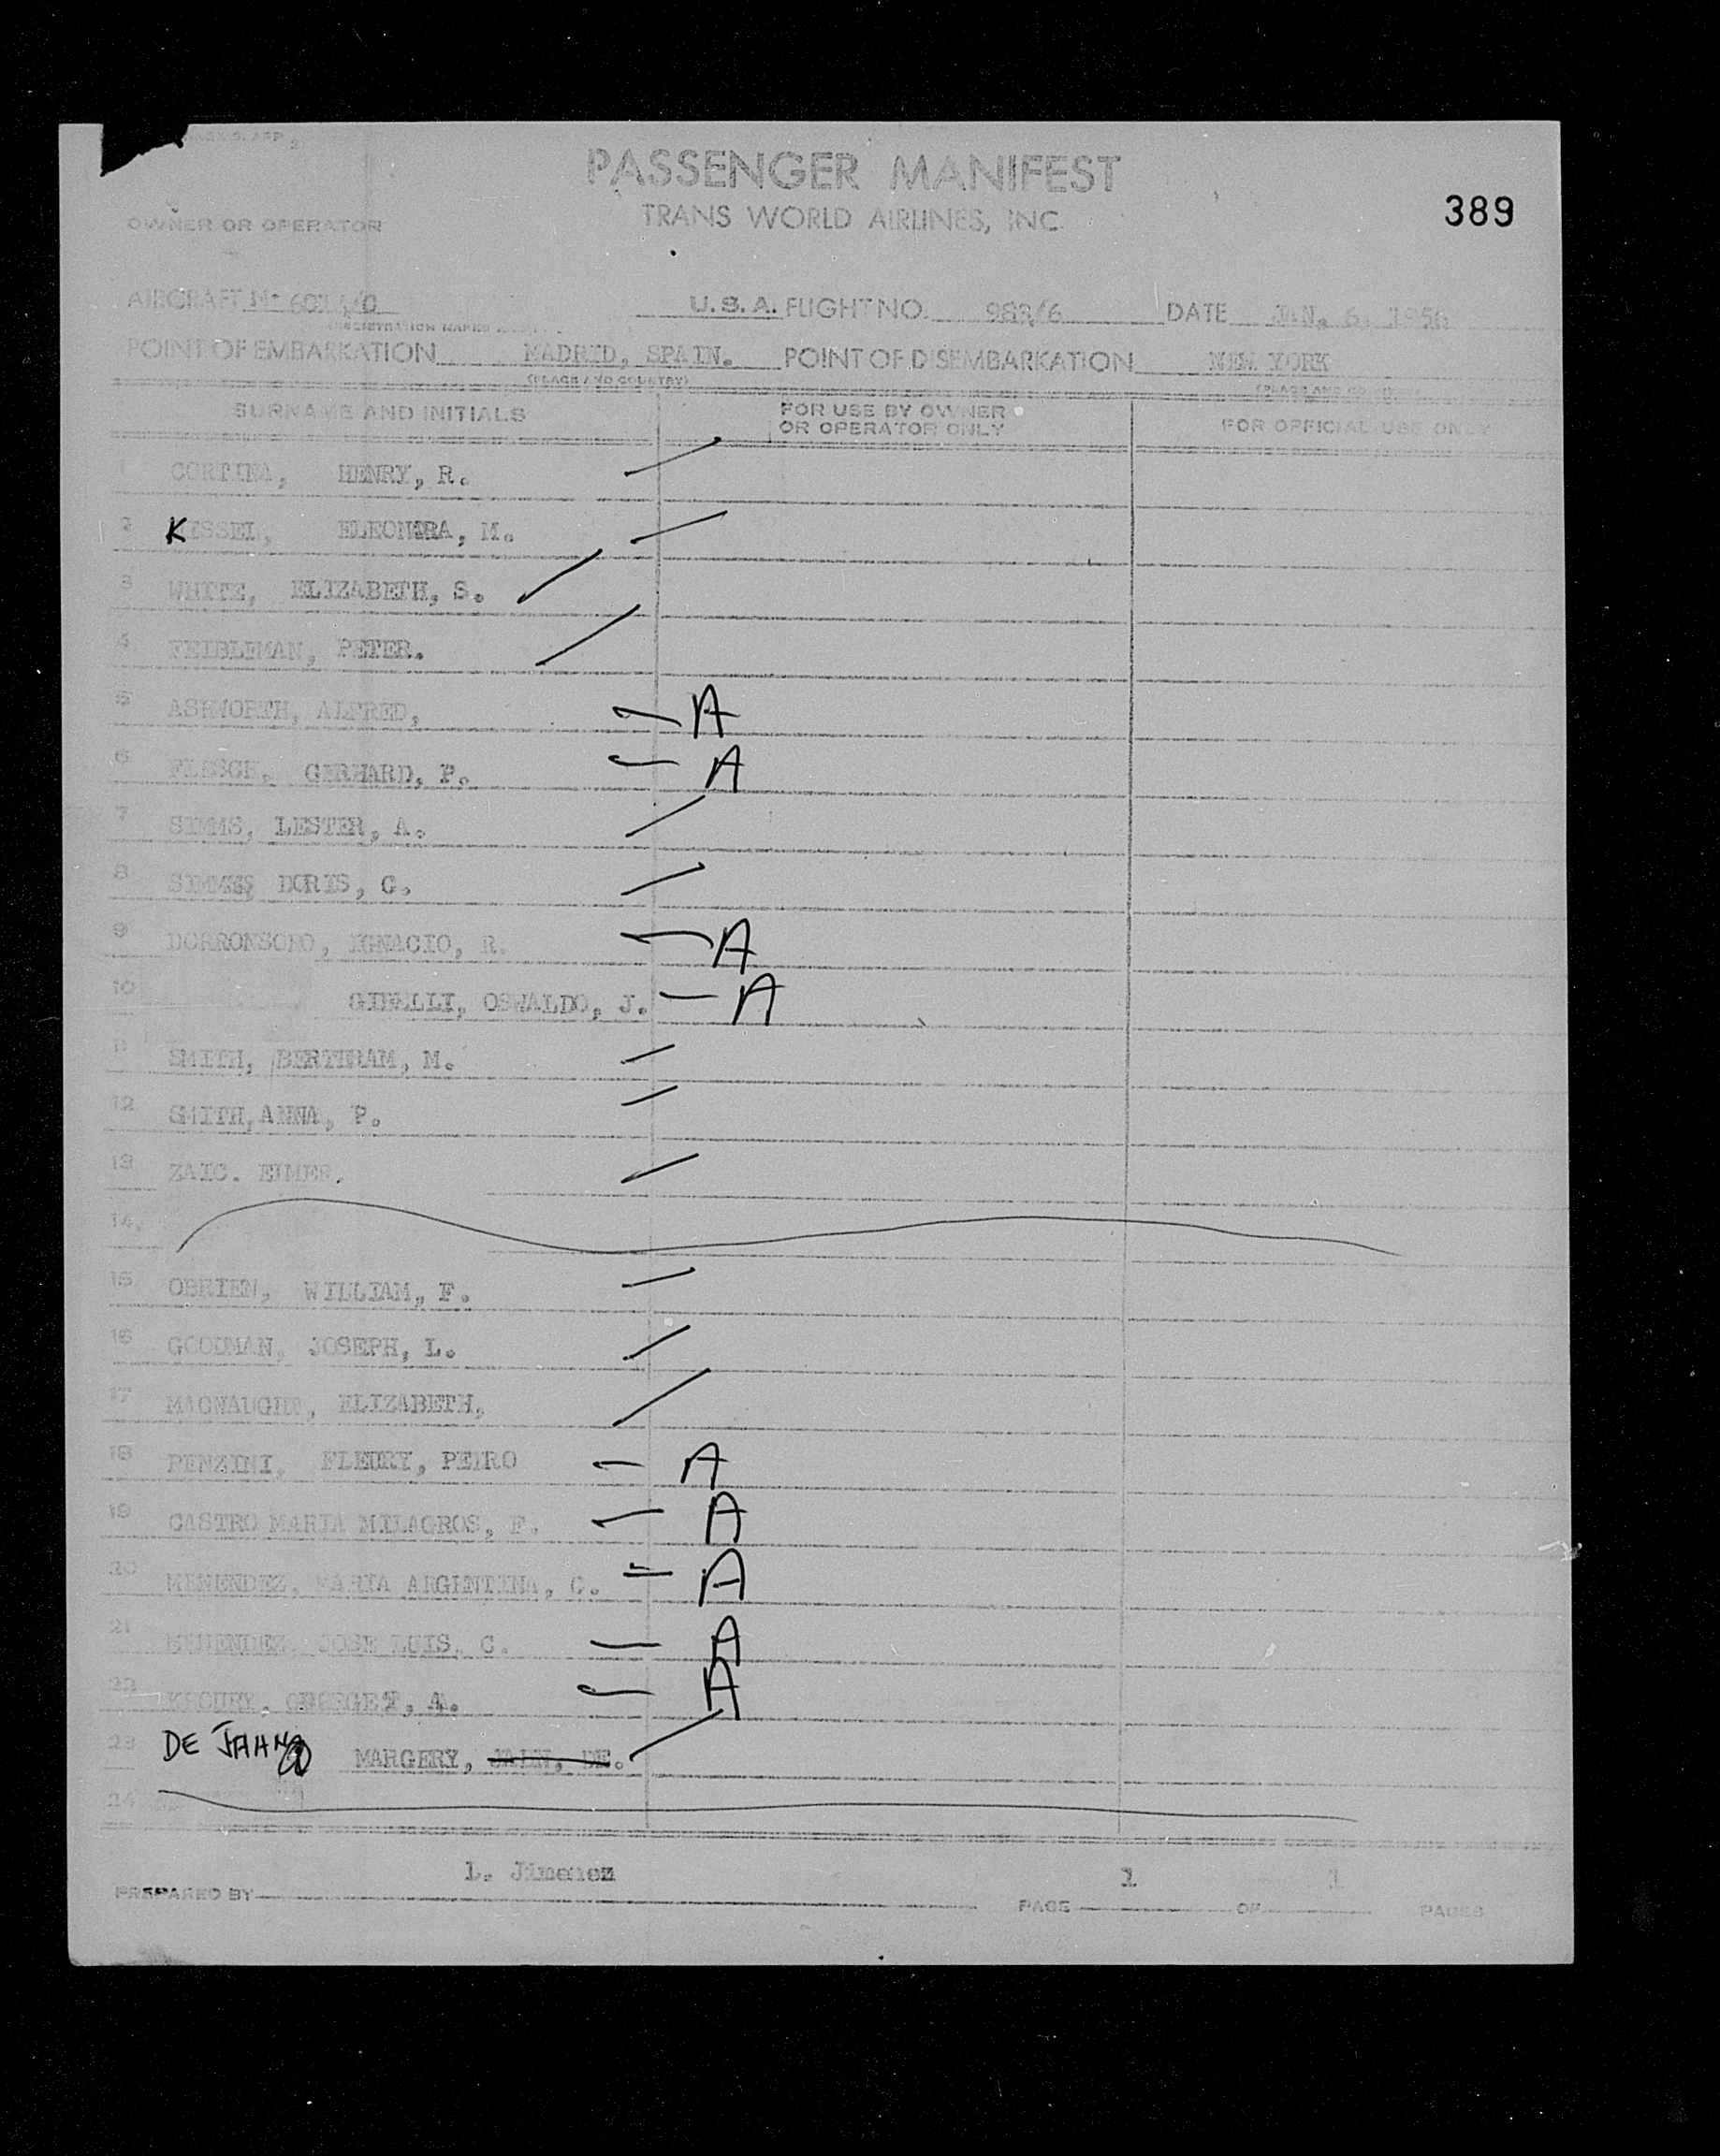 PASSENGER MANIFEST
TRANS WORLD AIRLINES, INC.
389
OWNER OR OPERATOR
AIRCRAFT U.S.A. FLIGHT NO. 983/6 DATE JAN, 6, 1956
(REGISTRATION MARKS
POINT OF EMBARKATION MADRID, SPAIN. POINT OF DISEMBARKATION NEW YORK
(PLACE AND COUNTRY)
SURNAME AND INITIALS FOR USE BY OWNER OR OPERATOR ONLY FOR OFFICIAL USE ONLY
1 CORTINA, HENRY, R.
2 KISSEL, M.
3 WHITE, ELIZABETH, S.
4 FEIBLIMAN, PETER.
5 ASHWORTH, ALFRED, A
6 FLESCH, GERHARD, P. A
7 SIMMS, LESTER, A.
8 DORIS, C.
9 DORRONSORO, IGNACIO, R. A
10 OSWALDO, J. A
11 SMITH, BERTHRAM, M.
12 SMITH, ANNA, P.
13 ZAIC.
14.
15. OBRIEN, WILLIAM, F.
16 GOODMAN, JOSEPH, L.
17 MACNAUGHT, ELIZABETH,
18 PENZINI, FLEURY, PEDRO A
19 CASTRO MARIA MILAGROS, F. A
20 MENENDEZ, MARIA ARGINTINA, C. A
21 MENENDEZ, JOSE LUIS, C. A
22 A. A
23 DE JAHN MARGERY, JAHN, DE.
24
L. Jimenez 1 1
PREPARED BY PAGE OF PAGES